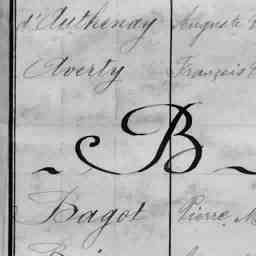 d'Authenay Auguste
Averty François
~ B ~
Bagot Pierre, M